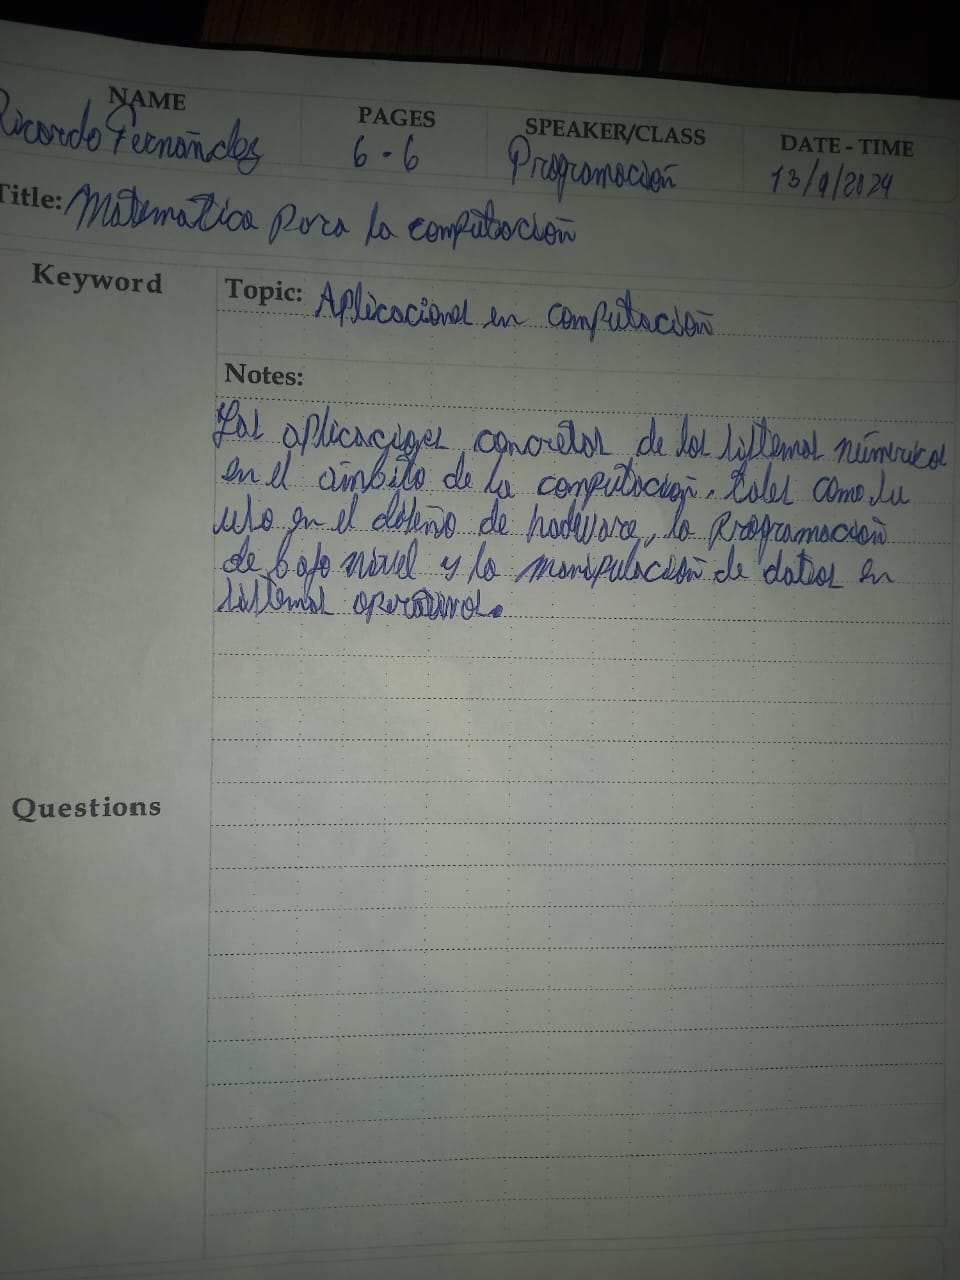 NAME PAGES SPEAKER/CLASS DATE - TIME
Ricardo Fernández 6 - 6 Programación 13/9/2024
Title: Matematica para la computación
Keyword Topic: Aplicaciones en computación
Notes:
Las aplicaciones concretas de los sistemas númericos
en el ámbito de la computación, tales como su
uso en el diseño de hadware, la programación
de bajo nivel y la manipulación de datos en
sistemas operativos.
Questions